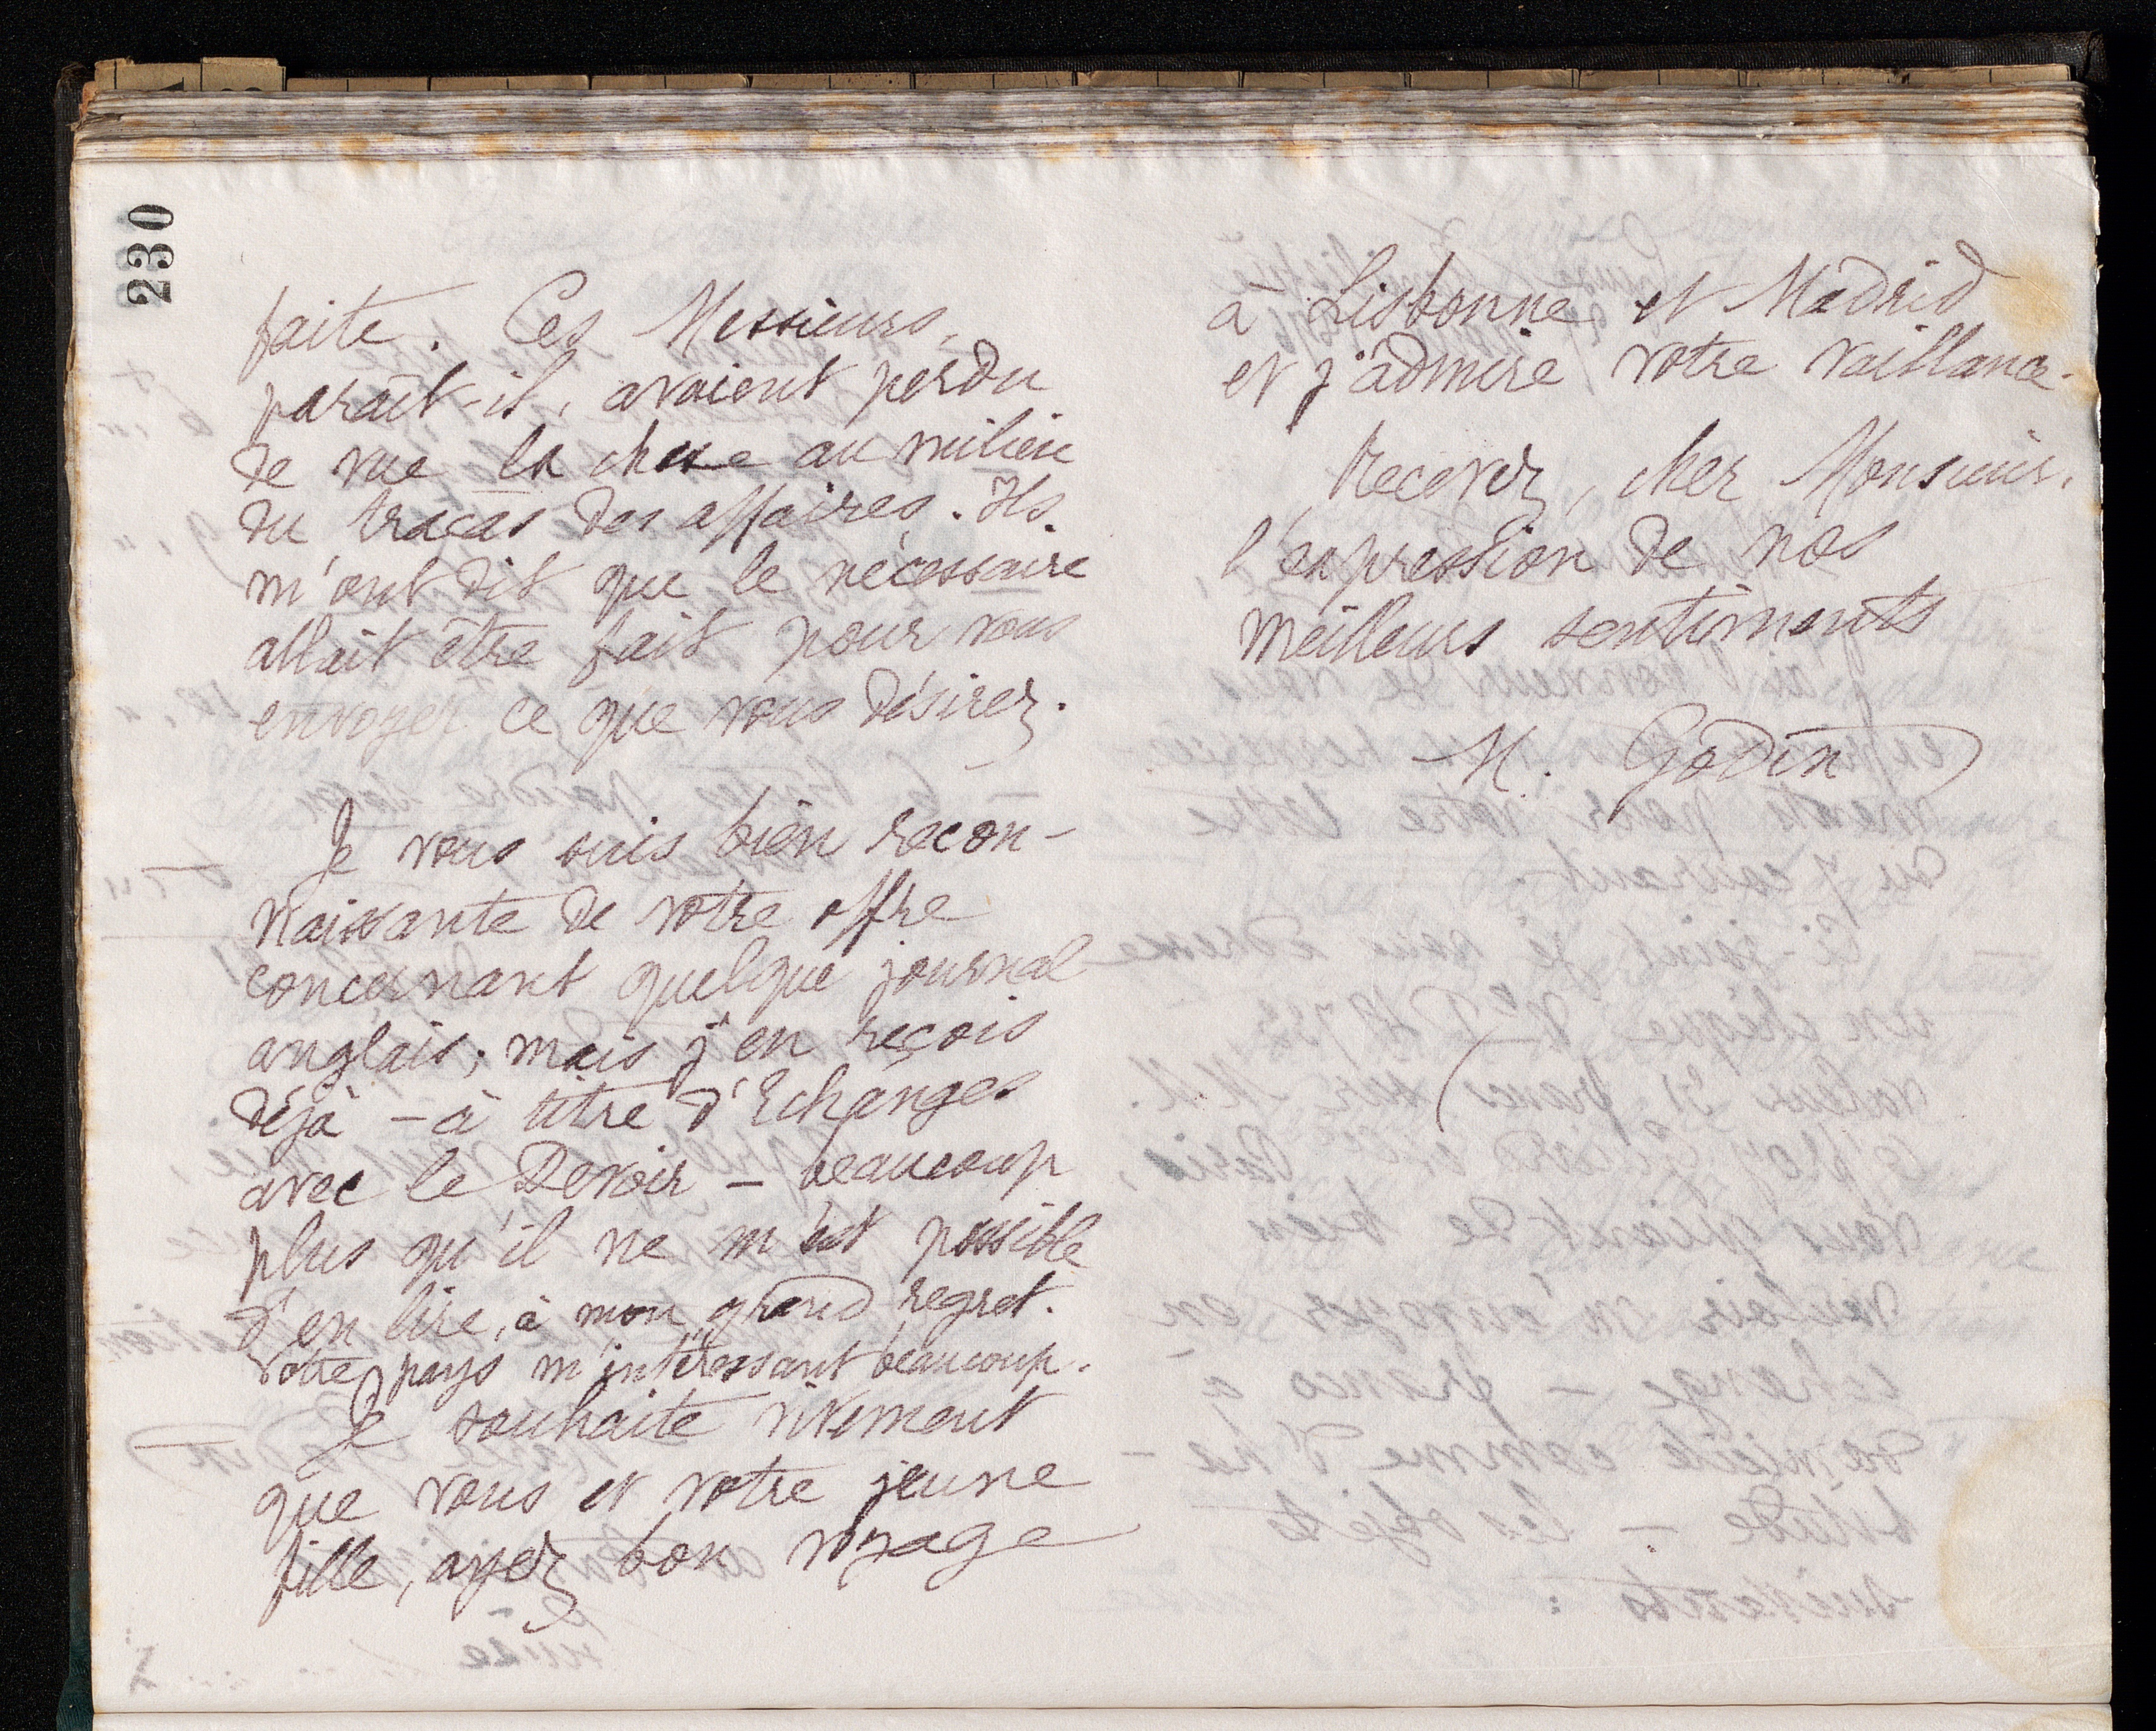 230
faite. Ces Messieurs,
paraît-il, avaient perdu
de vue la chose au milieu
du tracas des affaires. Ils
m'ont dit que le nécessaire
allait être fait pour vous
envoyer ce que vous désirez.
Je vous suis bien recon-
naissante de votre offre
concernant quelque journal
anglais; mais j'en reçois
déjà - à titre d'Echanges
avec le Devoir - beaucoup
plus qu'il ne m'est possible
d'en lire, à mon grand regret.
Votre pays m'intéressant beaucoup.
Je souhaite vivement
que vous et votre jeune
fille, ayez bon voyage
à Lisbonne et Madrid
et j'admire votre vaillance.
Recevez, cher Monsieur,
l'expression de nos
meilleurs sentiments
M. Godin